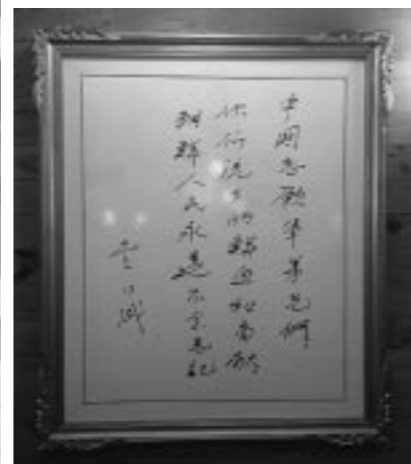 中国志愿军弟兄们
你们流下的鲜血和贡献
朝鲜人民永远不会忘记
金日成